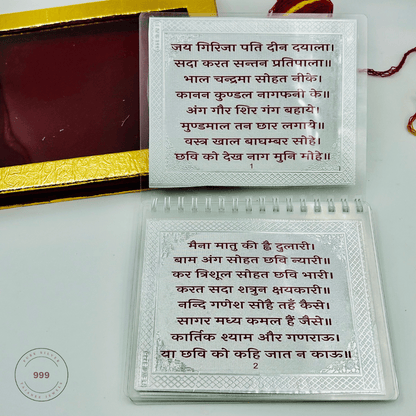 जय गिरिजा पति दीन दयाला।
सदा करत सन्तन प्रतिपाला॥
भाल चन्द्रमा सोहत नीके।
कानन कुण्डल नागफनी के॥
अंग गौर शिर गंग बहाये।
मुण्डमाल तन छार लगाये॥
वस्त्र खाल बाघम्बर सोहै।
छवि को देख नाग मुनि मोहे॥
1
मैना मातु की ह्वै दुलारी।
बाम अंग सोहत छवि न्यारी॥
कर त्रिशूल सोहत छवि भारी।
करत सदा शत्रुन क्षयकारी॥
नन्दि गणेश सोहै तहँ कैसे।
सागर मध्य कमल हैं जैसे॥
कार्तिक श्याम और गणराऊ।
या छवि को कहि जात न काऊ॥
2
999